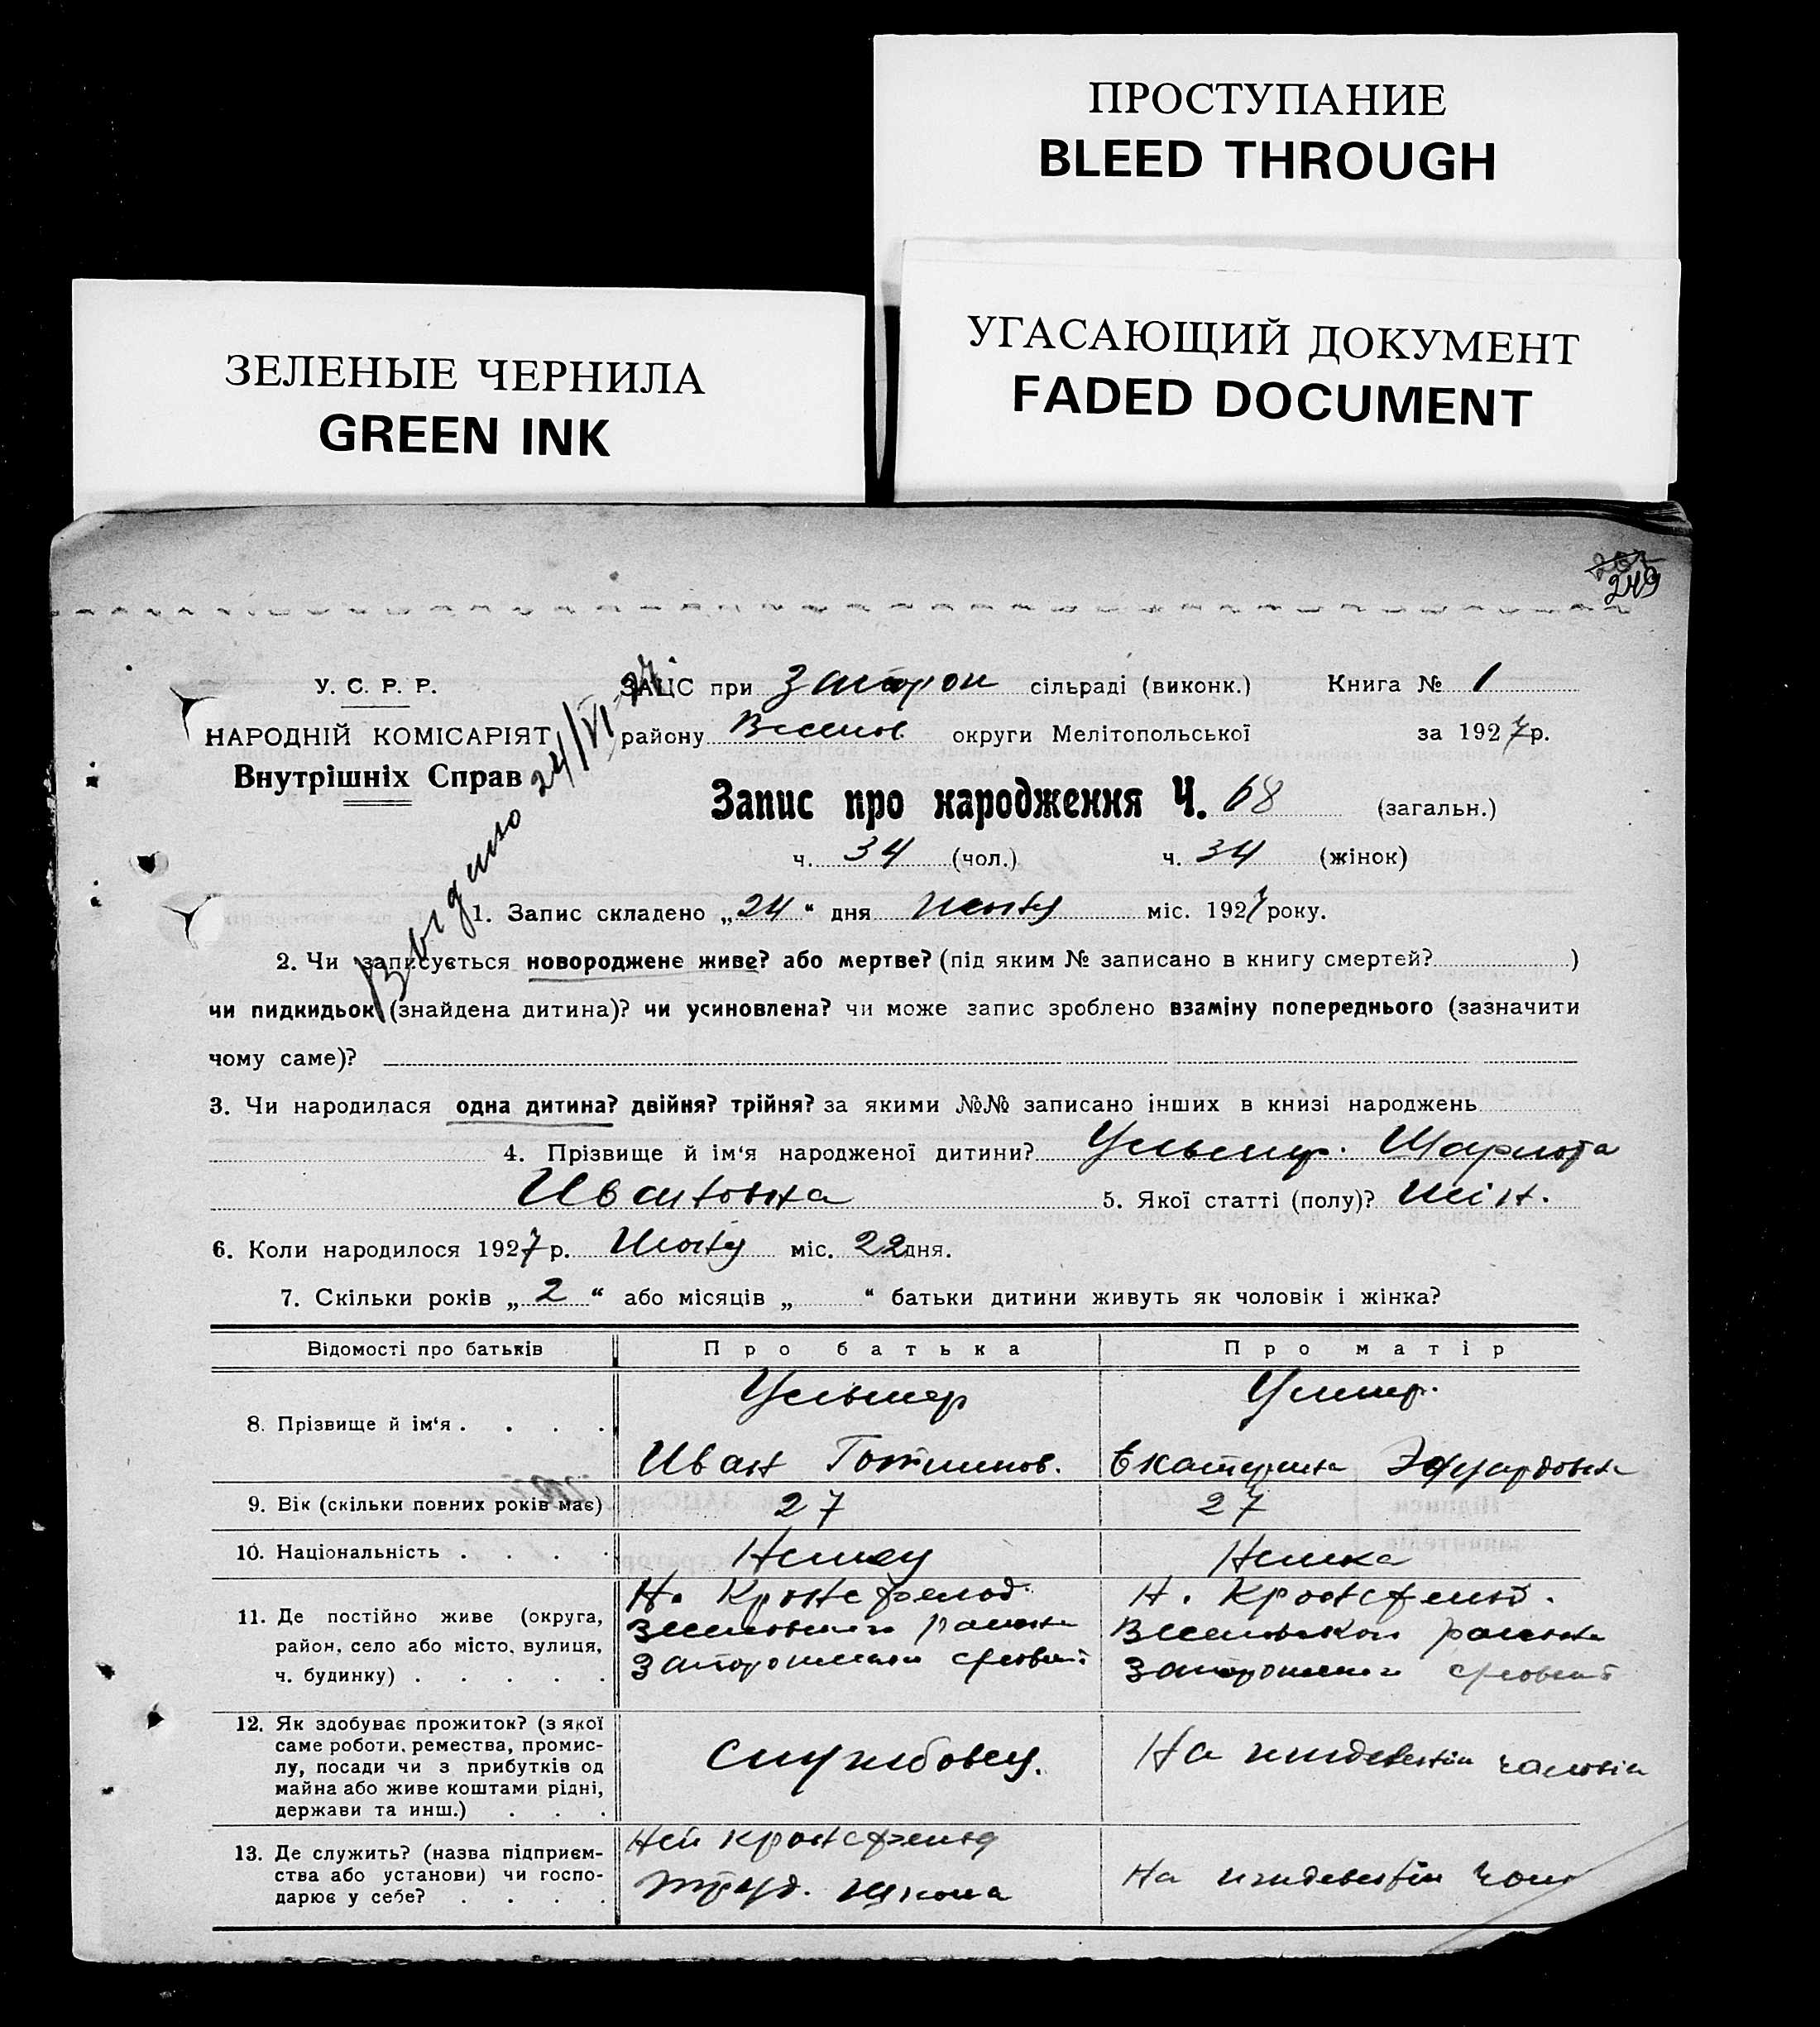 ПРОСТУПАНИЕ
BLEED THROUGH
УГАСАЮЩИЙ ДОКУМЕНТ
FADED DOCUMENT
ЗЕЛЕНЫЕ ЧЕРНИЛА
GREEN INK
249
У. С. Р. Р.
НАРОДНІЙ КОМІСАРІЯТ
Внутрішніх Справ
Выдано 24/VI-27
ЗАЦС при сільраді (виконк.) Книга № 1
району округи Мелітопольської за 1927 р.
Запис про народження Ч. 68 (загальн.)
ч. 34 (чол.) ч. 34 (жінок)
1. Запис складено „24“ дня міс. 1927 року.
2. Чи записується новороджене живе? або мертве? (під яким № записано в книгу смертей? )
чи пидкидьок (знайдена дитина)? чи усиновлена? чи може запис зроблено взаміну попереднього (зазначити
чому саме)?
3. Чи народилася одна дитина? двійня? трійня? за якими №№ записано інших в книзі народжень
4. Прізвище й ім‘я народженої дитини? Шарлота
Ивановна 5. Якої статті (полу)? Жін.
6. Коли народилося 1927 р. міс. 22 дня.
7. Скільки років „2“ або місяців „ “ батьки дитини живуть як чоловік і жінка?
Відомості про батьків Про батька Про матір
8. Прізвище й ім‘я . . . .
Иван Екатерина Эдуардовна
9. Вік (скільки повних років має) 27 27
10. Національність . . . . Немец Немка
11. Де постійно живе (округа,
район, село або місто, вулиця,
ч. будинку) . . . . .
Н. Кронсфельд Н. Кронсфельд.
12. Як здобуває прожиток? (з якої
саме роботи, ремества, промис-
лу, посади чи з прибутків од
майна або живе коштами рідні,
держави та инш.) . . .
службовец. На
13. Де служить? (назва підприєм-
ства або установи) чи госпо-
дарює у себе? . . . .
Ней Кронсфельд
труд. школа На